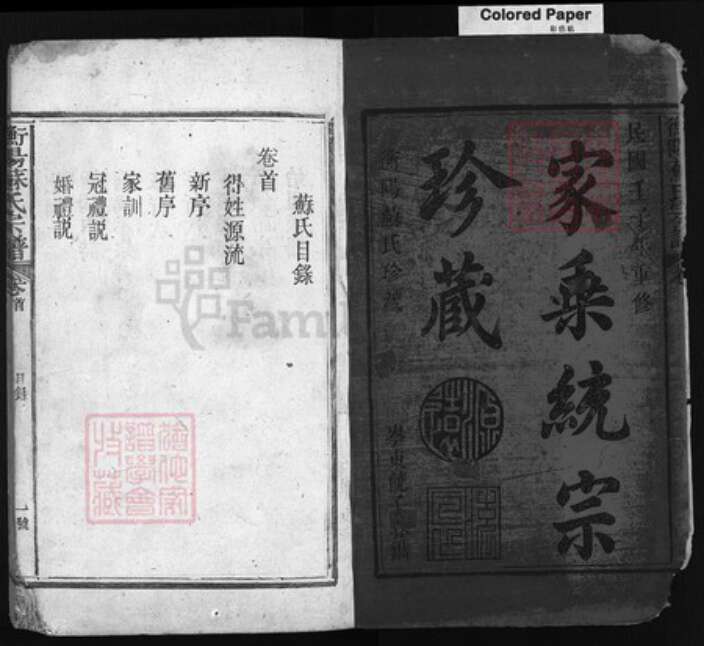 Colored Paper
彩色紙
民國壬子年重修
家乘統宗
珍藏
衡陽蘇氏珍藏
蘇氏目錄
卷首
得姓源流
新序
舊序
家訓
冠禮説
婚禮説
衡陽蘇氏宗譜
卷首
目錄
一號